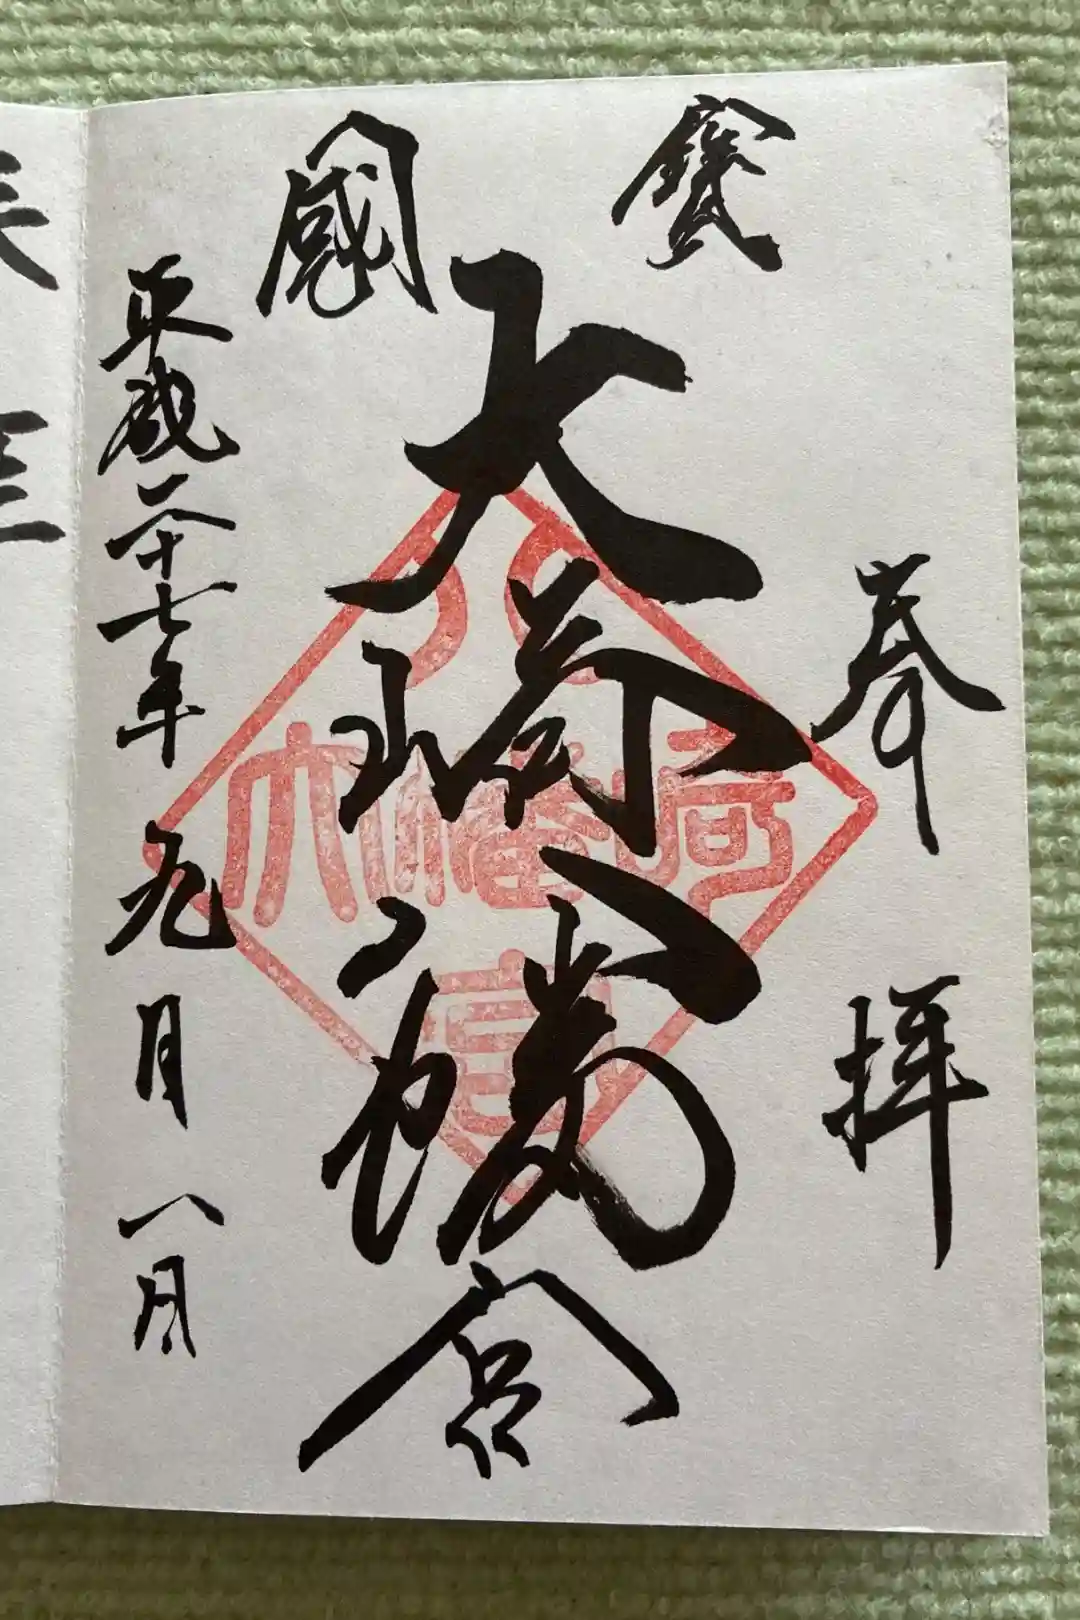 國寶
奉拝
大崎八幡宮
平成二十七年九月八日
大崎八幡宮